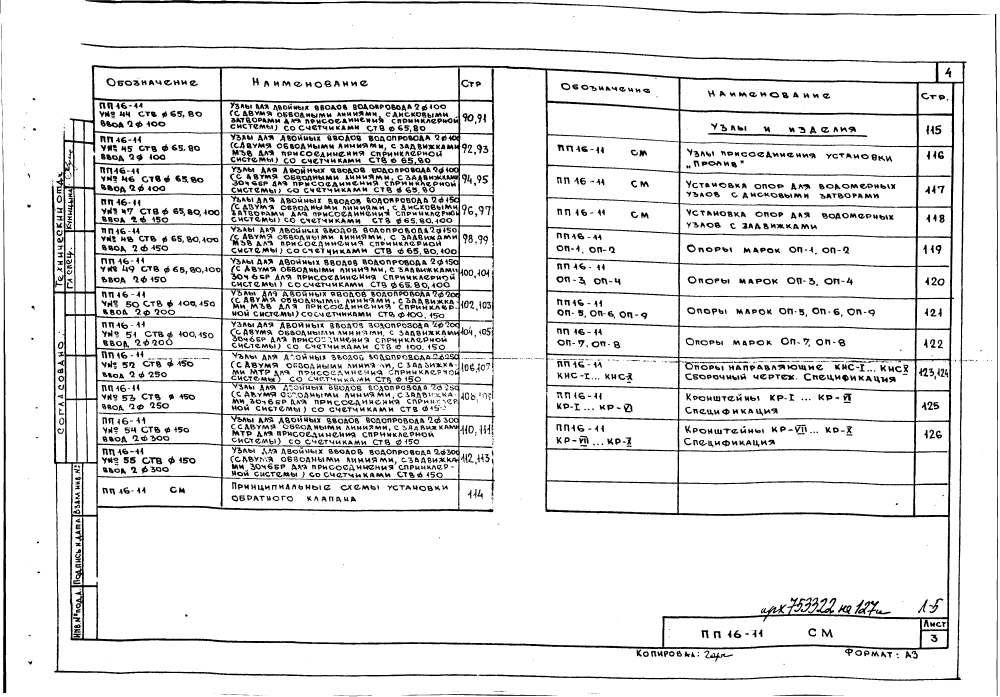 4
Обозначение Наименование Стр
ПП 16-11
У№ 44 СТВ ф 65, 80
Ввод 2ф 100
Узлы для двойных вводов водопровода 2ф100
(с двумя обводными линиями, с дисковыми
затворами для присоединения спринклерной
системы) со счетчиками СТВ ф 65,80
90,91
ПП 16-11
У№ 45 СТВ ф 65, 80
Ввод 2ф 100
Узлы для двойных вводов водопровода 2ф 100
(с двумя обводными линиями, с задвижками
МЗВ для присоединения спринклерной
системы) со счетчиками СТВ ф 65,80
92,93
ПП 16-11
У№ 46 СТВ ф 65, 80
Ввод 2ф 100
Узлы для двойных вводов водопровода 2ф 100
(с двумя обводными линиями, с задвижками
30ч 6бр для присоединения спринклерной
системы) со счетчиками СТВ ф 65,80
94,95
ПП 16-11
У№ 47 СТВ ф 65, 80, 100
Ввод 2ф 150
Узлы для двойных вводов водопровода 2ф 150
(с двумя обводными линиями, с дисковыми
затворами для присоединения спринклерной
системы) со счетчиками СТВ ф 65,80,100
96,97
ПП 16-11
У№ 48 СТВ ф 65, 80, 100
Ввод 2ф 150
Узлы для двойных вводов водопровода 2ф150
(с двумя обводными линиями, с задвижками
МЗВ для присоединения спринклерной
системы) со счетчиками СТВ ф 65,80,100
98,99
ПП 16-11
У№ 49 СТВ ф 65,80,100
Ввод 2ф 150
Узлы для двойных вводов водопровода 2ф 150
(с двумя обводными линиями, с задвижками
30ч 6бр для присоединения спринклерной
системы) со счетчиками СТВ ф 65,80,100
100,101
ПП 16-11
У№ 50 СТВ ф 100,150
Ввод 2ф 200
Узлы для двойных вводов водопровода 2ф 200
(с двумя обводными линиями, с задвижка-
ми МЗВ для присоединения спринклер-
ной системы) со счетчиками СТВ ф 100, 150
102,103
ПП 16-11
У№ 51 СТВ ф 100,150
Ввод 2ф200
Узлы для двойных вводов водопровода 2ф200
(с двумя обводными линиями, с задвижками
30ч6бр для присоединения спринклерной
системы) со счетчиками СТВ ф 100,150
104,105
ПП 16-11
У№ 52 СТВ ф 150
Ввод 2ф 250
Узлы для двойных вводов водопровода 2ф250
(с двумя обводными линиями, с задвижка-
ми МТР для присоединения спринклерной
системы) со счетчиками СТВ ф 150
106,107
ПП 16-11
У№ 53 СТВ ф 150
Ввод 2ф 250
Узлы для двойных вводов водопровода 2ф 250
(с двумя обводными линиями, с задвижка-
ми 30ч6бр для присоединения спринклер-
ной системы) со счетчиками СТВ ф 150
108,109
ПП 16-11
У№ 54 СТВ ф 150
Ввод 2ф300
Узлы для двойных вводов водопровода 2ф 300
(с двумя обводными линиями, с задвижками
МТР для присоединения спринклерной
системы) со счетчиками СТВ ф 150
110,111
ПП 16-11
У№ 55 СТВ ф 150
Ввод 2ф300
Узлы для двойных вводов водопровода 2ф300
(с двумя обводными линиями, с задвижка-
ми 30ч6бр для присоединения спринклер-
ной системы) со счетчиками СТВ ф 150
112,113
ПП 16-11 СМ
Принципиальные схемы установки
обратного клапана
114
Обозначение Наименование Стр.
Узлы и изделия 115
ПП 16-11 СМ
Узлы присоединения установки
„Пролив"
116
ПП 16-11 СМ
Установка опор для водомерных
узлов с дисковыми затворами
117
ПП 16-11 СМ
Установка опор для водомерных
узлов с задвижками
118
ПП 16-11
ОП-1, ОП-2
Опоры марок ОП-1, ОП-2
119
ПП 16-11
ОП-3, ОП-4
Опоры марок ОП-3, ОП-4
120
ПП 16-11
ОП-5, ОП-6, ОП-9
Опоры марок ОП-5, ОП-6, ОП-9
121
ПП 16-11
ОП-7, ОП-8
Опоры марок ОП-7, ОП-8
122
ПП 16-11
КНС-I... КНС-X
Опоры направляющие КНС-I... КНС-X
Сборочный чертеж. Спецификация
123,124
ПП 16-11
КР-I ... КР-VI
Кронштейны КР-I ... КР-VI
Спецификация
125
ПП 16-11
КР-VII ... КР-X
Кронштейны КР-VII ... КР-X
Спецификация
126
Согласовано:
Технический отд.
Гл. спец.
Инв.№ подл. Подпись и дата Взам инв.№
арх 753322 на 127л Л-5
ПП 16-11 СМ
Лист
3
Копировал: Формат: А3